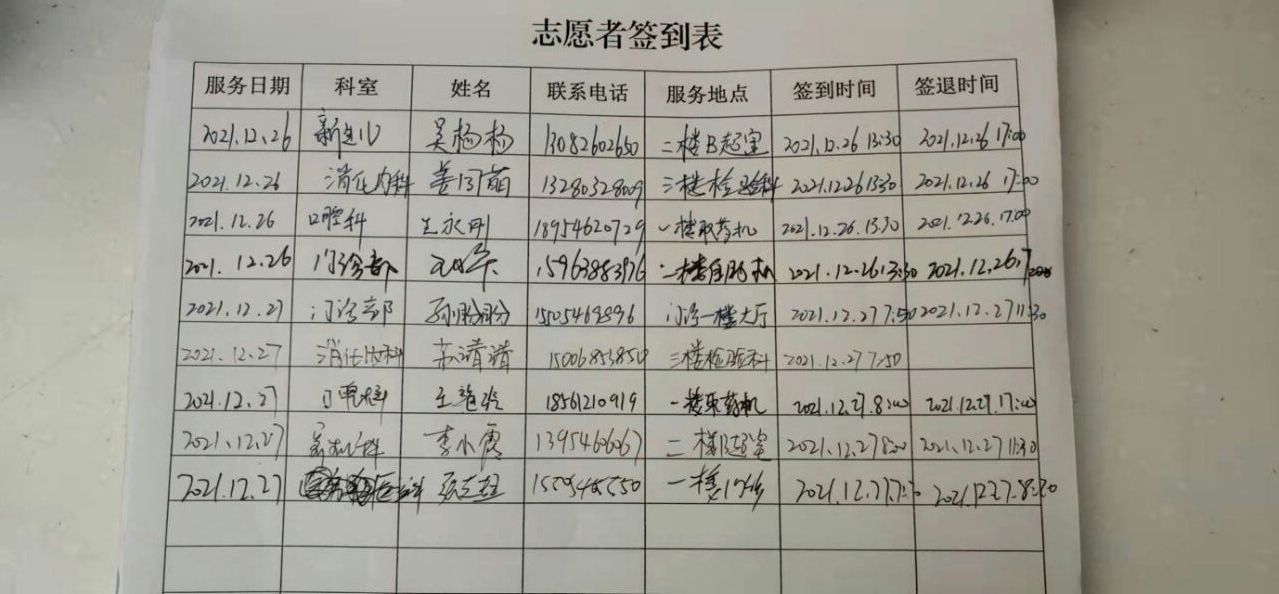 志愿者签到表
服务日期 科室 姓名 联系电话 服务地点 签到时间 签退时间
2021.12.26 新生儿 吴杨杨 13082602650 二楼B超室 2021.12.26 13:30 2021.12.26 17:00
2021.12.26 消化内科 姜同萌 13280328009 三楼检验科 2021.12.26 13:30 2021.12.26 17:00
2021.12.26 口腔科 王永刚 18954620729 一楼取药机 2021.12.26.13.30 2021.12.26.17.00
2021.12.26 门诊部 15963883976 2021.12.26.13:30 2021.12.26.17
2021.12.27 门诊部 孙盼盼 门诊一楼大厅 2021.12.27 7:50 2021.12.27 11:30
2021.12.27 消化内科 苏清清 15006853850 三楼检验科 2021.12.27 7:50
2021.12.27 口腔科 18561210919 一楼取药机 2021.12.27.8:00 2021.12.27.17:00
2021.12.27 李小霞 13954606067 二楼B超室 2021.12.27 8:00 2021.12.27 11:30
2021.12.27 一楼